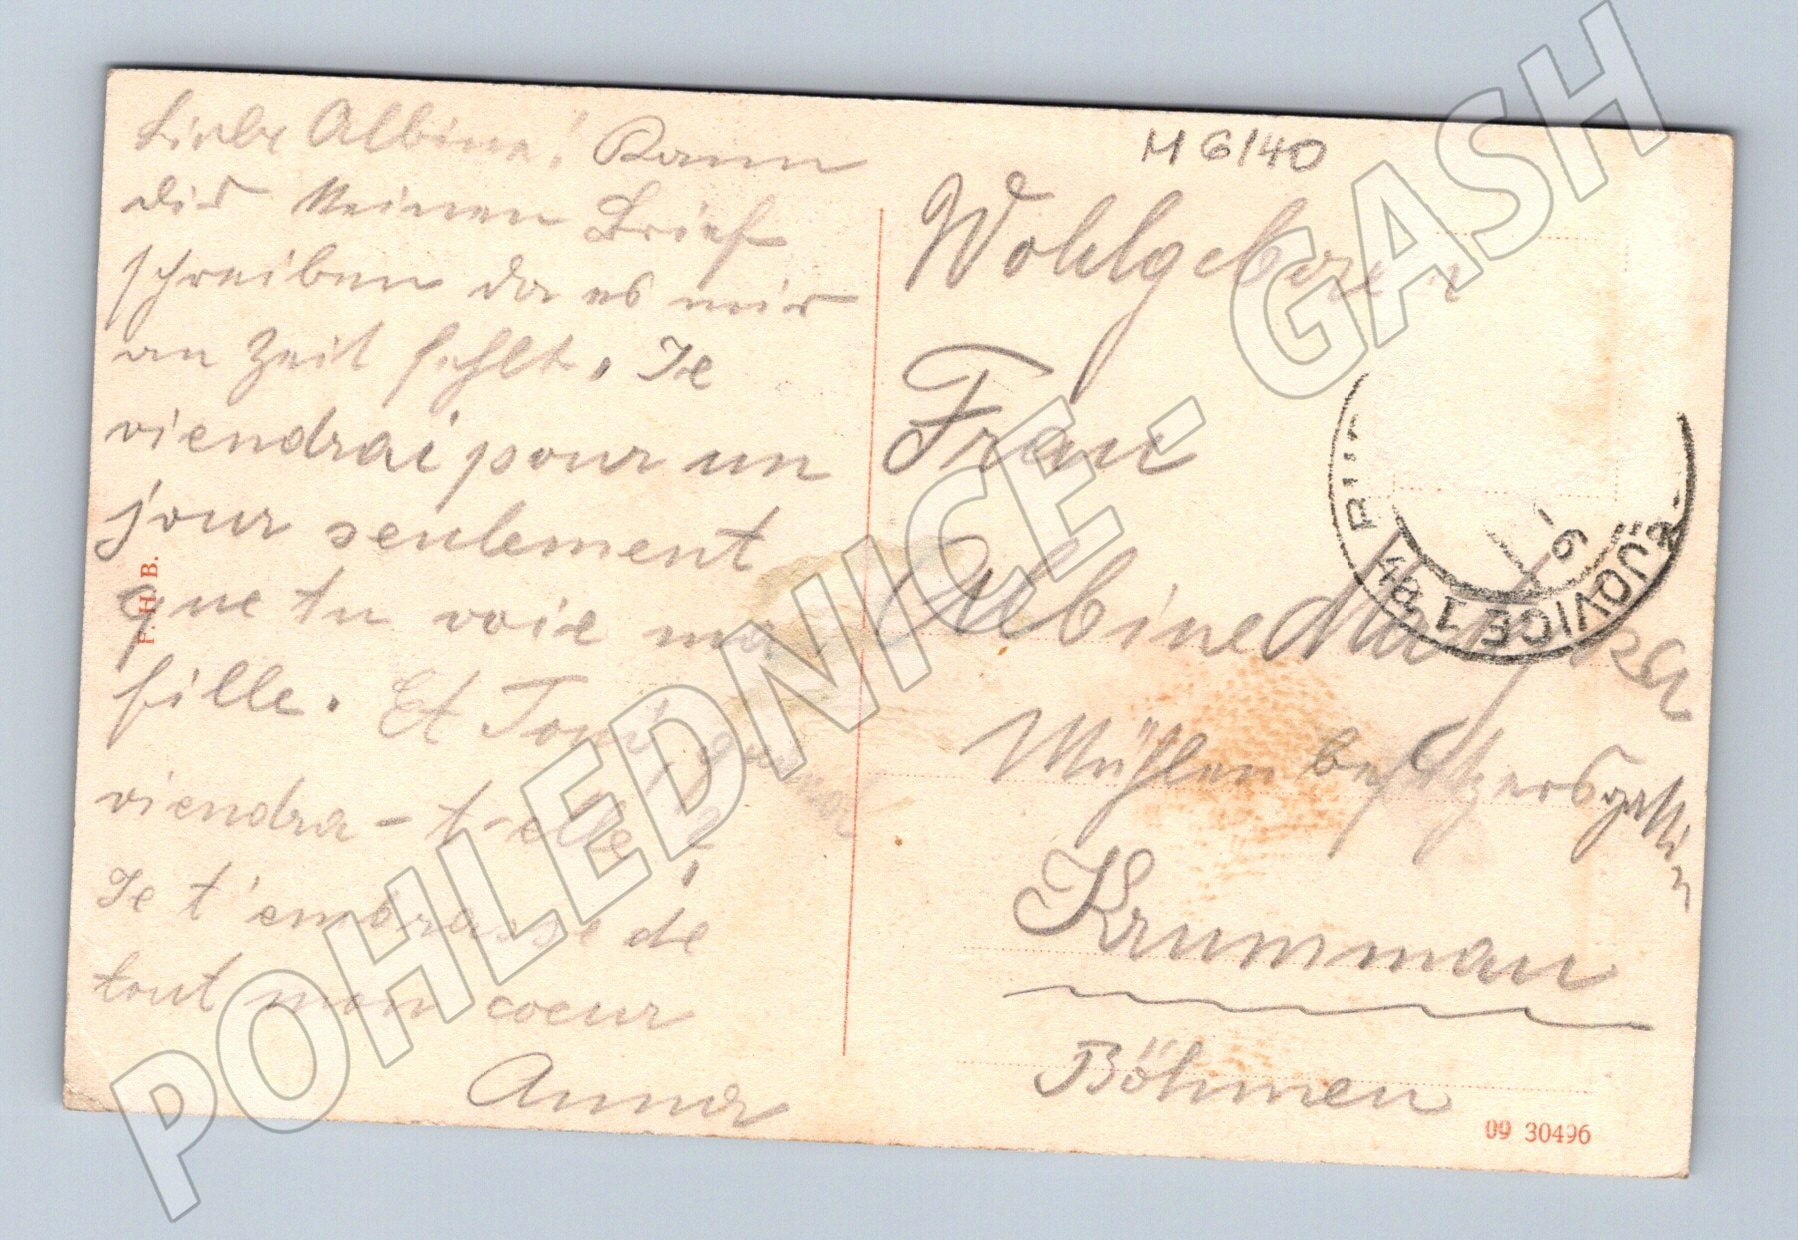 Liebe Albine! Kann
dir keinen Brief
schreiben da es mir
an Zeit fehlt. Je
viendrai pour un
jour seulement
que tu voie ma
fille. Et Toni, quand
viendra-t-elle?
Je t'embrasse de
tout mon coeur
Anna
P. H. B.
M 6/40
Wohlgeboren
Frau
Albine
Mühlenbesitzersgattin
Krummau
Böhmen
09 30496
JOVICE 1
4B
6
POHLEDNICE - GASH